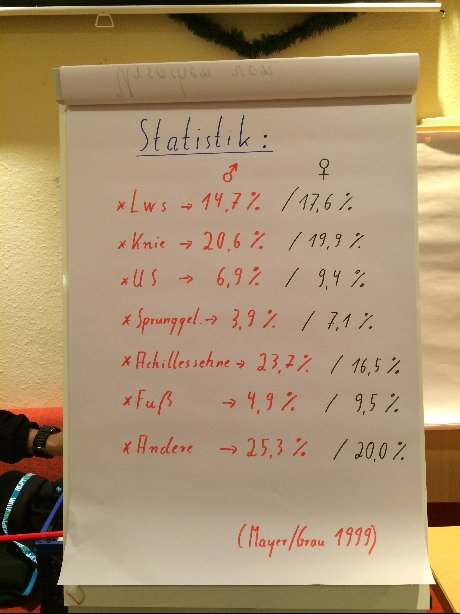 Ursachen von
Statistik:
♂ ♀
* LWS → 14,7 % / 17,6 %
* Knie → 20,6 % / 19,9 %
* US → 6,9 % / 9,4 %
* Sprunggel. → 3,9 % / 7,1 %
* Achillessehne → 23,7 % / 16,5 %
* Fuß → 4,9 % / 9,5 %
* Andere → 25,3 % / 20,0 %
(Mayer/Grau 1999)